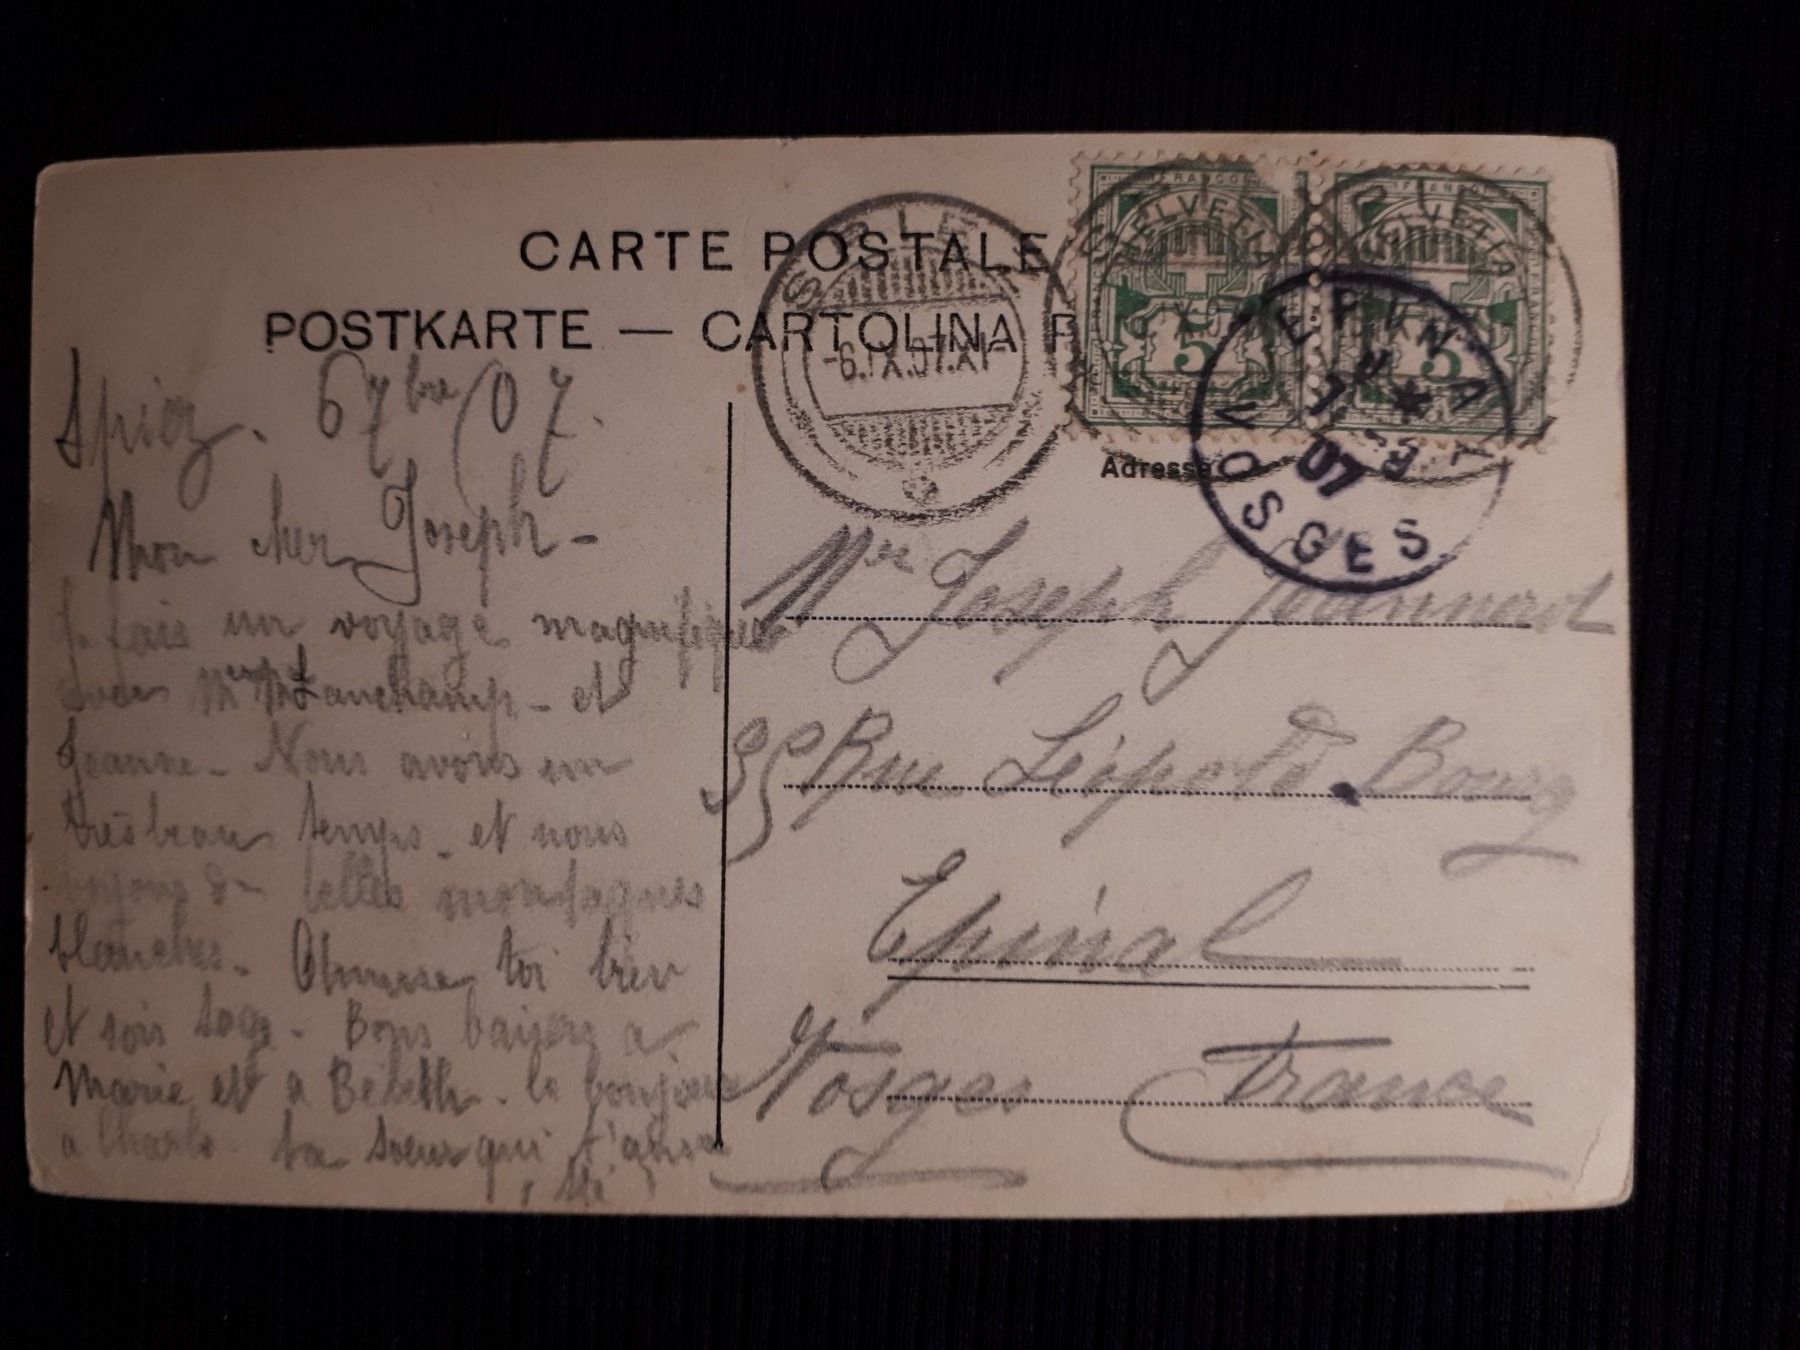 CARTE POSTALE
POSTKARTE — CARTOLINA P
SPIEZ
-6.IX.07.XI-
HELVETIA
FRANCO
5
HELVETIA
FRANCO
5
EPINAL
7
07
VOSGES
Adresse
Spiez. 6 7bre 07.
Mon cher Joseph -
Je fais un voyage magnifique
avec Mr Lanchamp - et
Jeanne - Nous avons un
très beau temps - et nous
voyons de belles montagnes
blanches - Amuse toi bien
et sois sage - Bons baisers a
Marie et a Bebeth - le bonjour
a Charlo ta soeur qui t'
Mr Joseph
35 Rue Léopold Bourg
Epinal
Vosges France